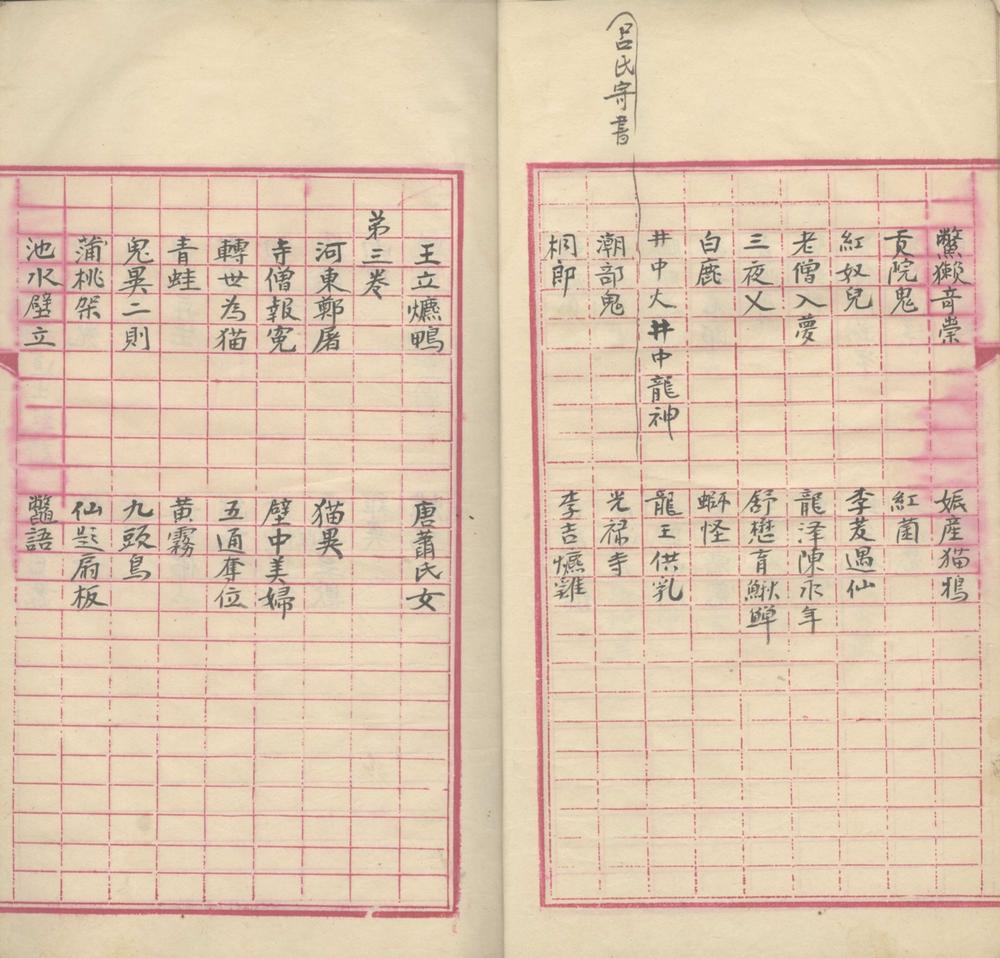 鱉獺奇祟　娠産猫鴉
貢院鬼　紅菌
紅奴兒　李芨遇仙
老僧入夢　龍泽陳永年
三夜乂　舒懋育鰍鱓
白鹿　蜘怪
井中火井中龍神　龍王供乳
呂氏寄書
潮部鬼　光禄寺
桐郎　李吉爊雞
王立爊鴨　唐蕭氏女
第三卷
河東鄭屠　猫異
寺僧報寃　壁中美婦
轉世為猫　五通奪位
青蛙　黄霧
鬼異二則　九頭鳥
蒲桃架　仙題扇板
池水壁立　鼈語